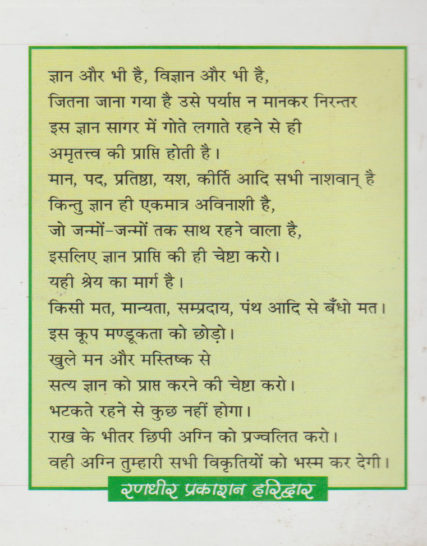 ज्ञान और भी है, विज्ञान और भी है,
जितना जाना गया है उसे पर्याप्त न मानकर निरन्तर
इस ज्ञान सागर में गोते लगाते रहने से ही
अमृतत्त्व की प्राप्ति होती है।
मान, पद, प्रतिष्ठा, यश, कीर्ति आदि सभी नाशवान् है
किन्तु ज्ञान ही एकमात्र अविनाशी है,
जो जन्मों-जन्मों तक साथ रहने वाला है,
इसलिए ज्ञान प्राप्ति की ही चेष्टा करो।
यही श्रेय का मार्ग है।
किसी मत, मान्यता, सम्प्रदाय, पंथ आदि से बँधो मत।
इस कूप मण्डूकता को छोड़ो।
खुले मन और मस्तिष्क से
सत्य ज्ञान को प्राप्त करने की चेष्टा करो।
भटकते रहने से कुछ नहीं होगा।
राख के भीतर छिपी अग्नि को प्रज्वलित करो।
वही अग्नि तुम्हारी सभी विकृतियों को भस्म कर देगी।
रणधीर प्रकाशन हरिद्वार